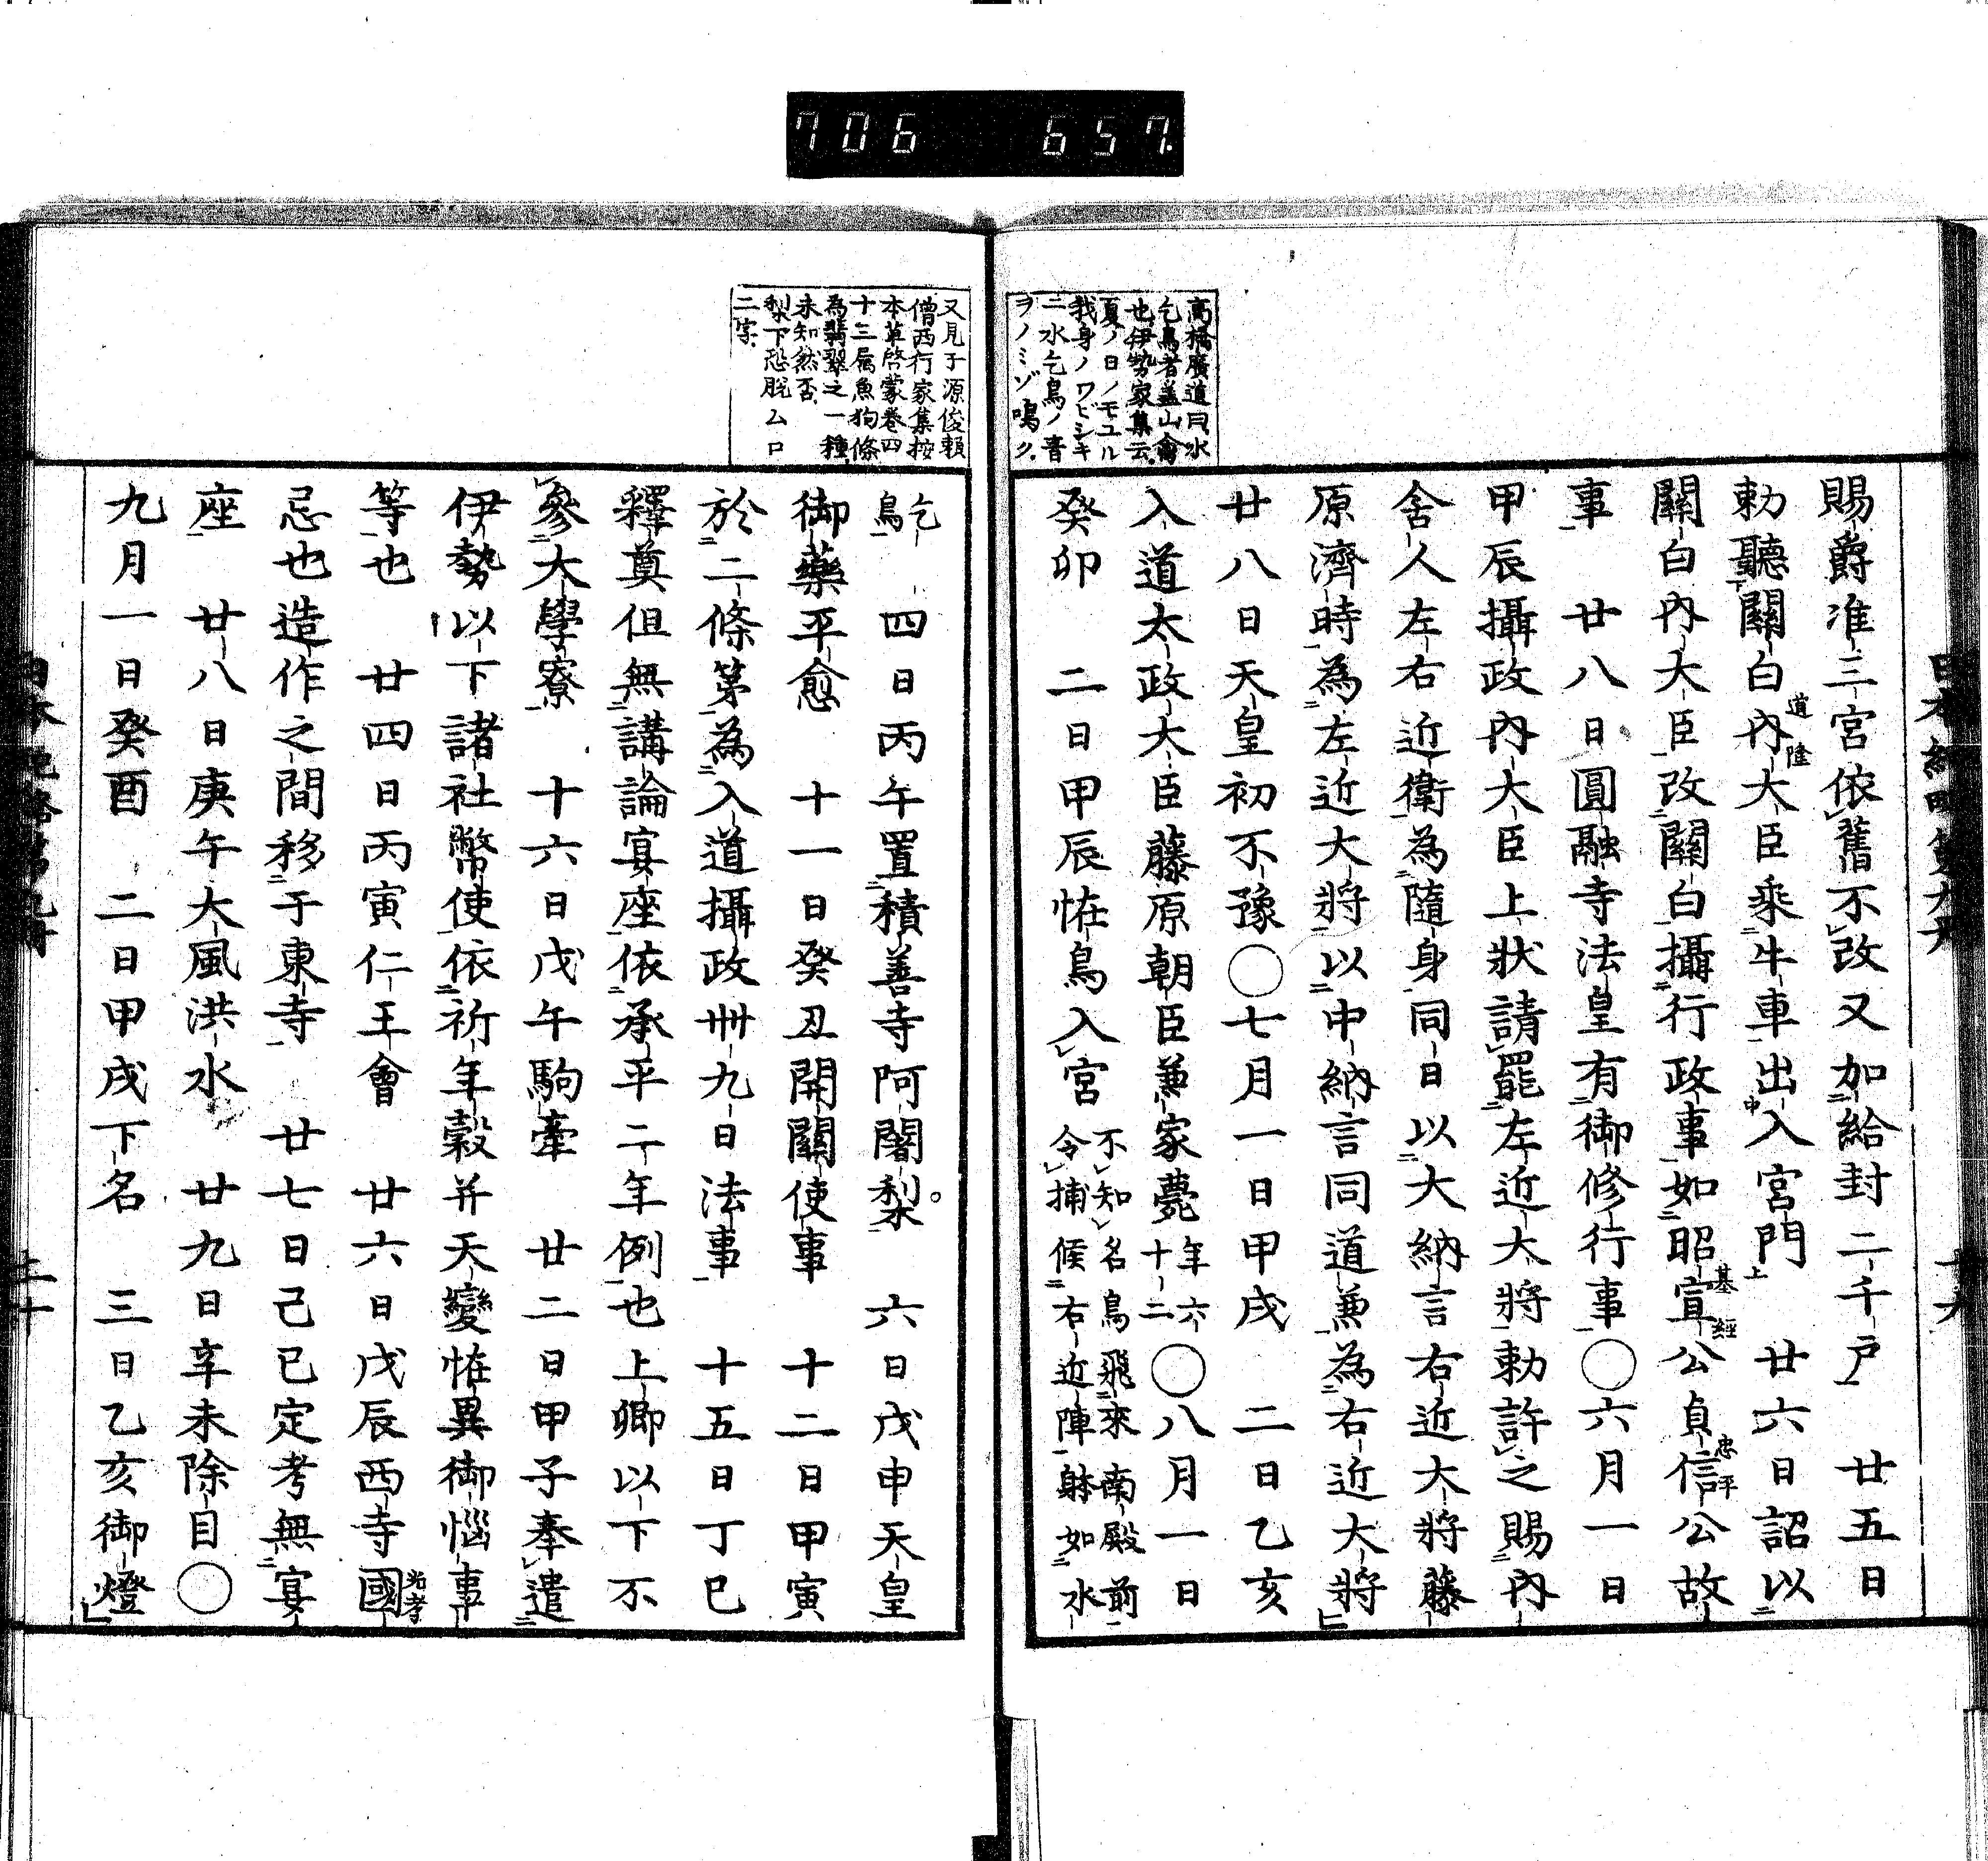 706 657
高橋廣道曰水
乞鳥者蓋山禽
也伊勢家集云
夏ノ日ノモユル
我身ノワビシキ
ニ水乞鳥ノ音
ヲノミゾ鳴ク
賜爵准三宮依舊不改又加給封二千戸 廿五日
勅聽關白內大臣乘牛車出入宮門 廿六日詔以
道隆
關白內大臣改關白攝行政事如昭宣公貞信公故
基經
忠平
事 廿八日圓融寺法皇有御修行事○六月一日
甲辰攝政內大臣上狀請罷左近大將勅許之賜內
舍人左右近衛為隨身同日以大納言右近大將藤
原濟時為左近大將以中納言同道兼為右近大將
廿八日天皇初不豫○七月一日甲戌 二日乙亥
入道太政大臣藤原朝臣兼家薨年六十二○八月一日
癸卯 二日甲辰恠鳥入宮
不知名鳥飛來南殿前
令捕候右近陣躰如水
又見于源俊賴
僧西行家集按
本草啓蒙卷四
十三屬魚狗條
為翡翠之一種
未知然否
梨下恐脫ム口
二字
乞鳥 四日丙午置積善寺阿闍梨。 六日戊申天皇
御藥平愈 十一日癸丑開關使事 十二日甲寅
於二條第為入道攝政卌九日法事 十五日丁巳
釋奠但無講論宴座依承平二年例也上卿以下不
參大學寮 十六日戊午駒牽 廿二日甲子奉遣
伊勢以下諸社幣使依祈年穀并天變恠異御惱事
等也 廿四日丙寅仁王會 廿六日戊辰西寺國
光孝
忌也造作之間移于東寺 廿七日己巳定考無宴
座 廿八日庚午大風洪水 廿九日辛未除目○
九月一日癸酉 二日甲戌下名 三日乙亥御燈